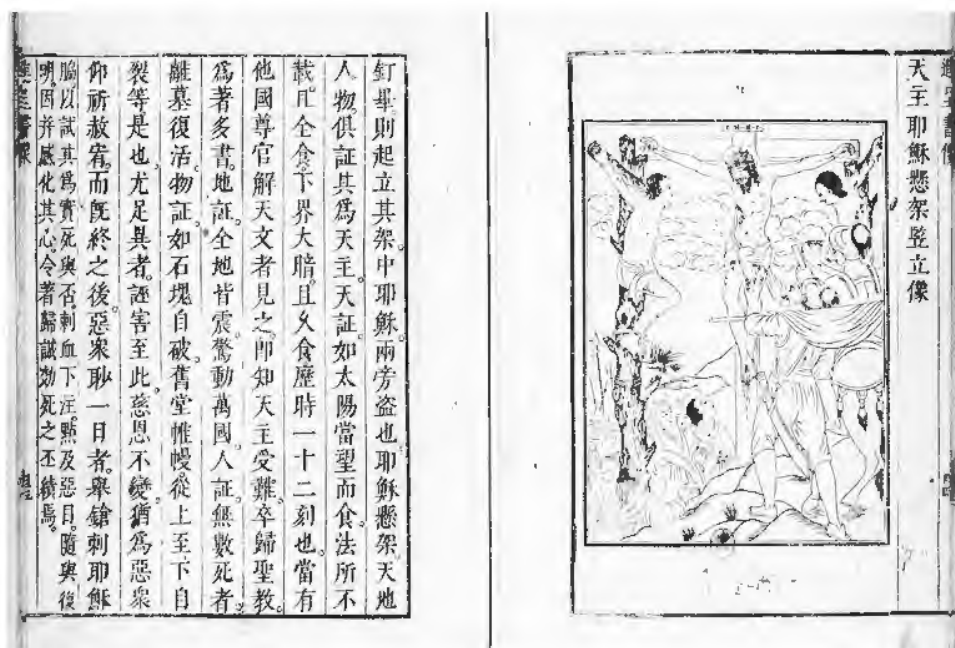 天主耶穌懸架竪立像
釘畢。則起立其架。中耶穌。兩旁盜也。耶穌懸架。天地
人物。俱証其爲天主。天証。如太陽當望而食。法所不
載。且全食。下界大暗。且久食歷時一十二刻也。當有
他國尊官解天文者見之。卽知天主受難。卒歸聖教。
爲著多書。地証。全地皆震。驚動萬國。人証。無數死者。
離墓復活。物証。如石塊自破。舊堂帷幔。從上至下自
裂等是也。尤足異者。誣害至此。慈恩不變。猶爲惡衆
仰祈赦宥。而旣終之後。惡衆眇一目者。舉鎗刺耶穌
脇。以試其爲實死與否。刺血下注。點及惡目。隨與復
明。因并感化其心。令著歸誠効死之丕績焉。
進呈書像